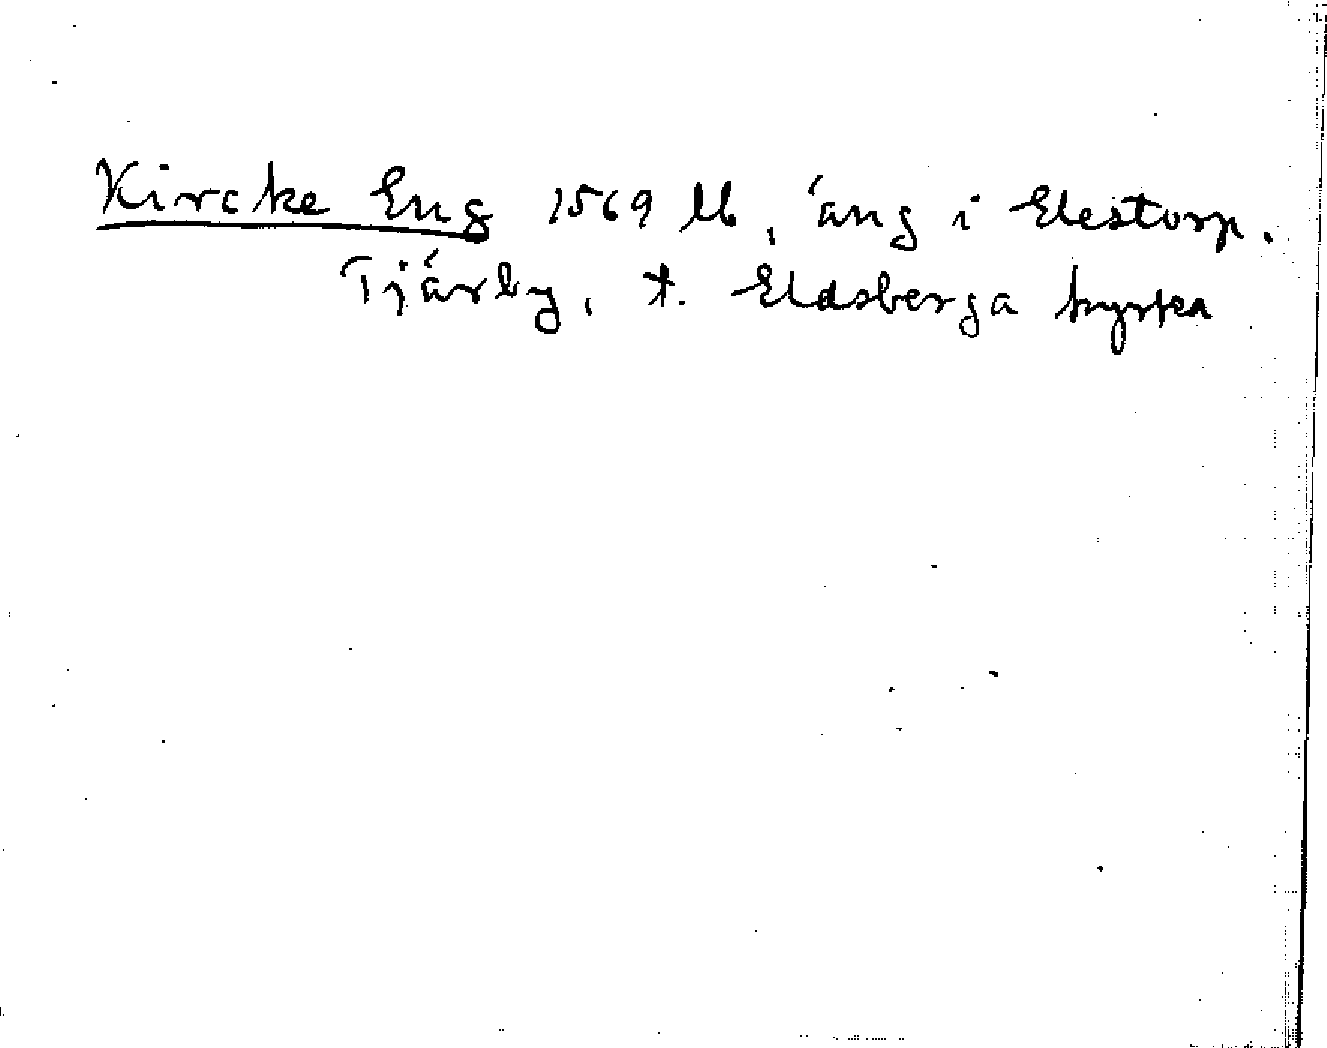 Kircke Eng 1569 Lb, äng i Elestorp.
Tjärby, t. Eldsberga kyrka